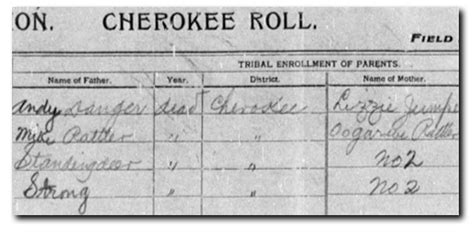 ON. CHEROKEE ROLL.
FIELD
TRIBAL ENROLLMENT OF PARENTS.
Name of Father. Year. District. Name of Mother.
Andy Sanger dead Cherokee Lizzie Jumpe
Mike Rattler " " Rattler
Standingdeer " " No 2
Strong " " No 2